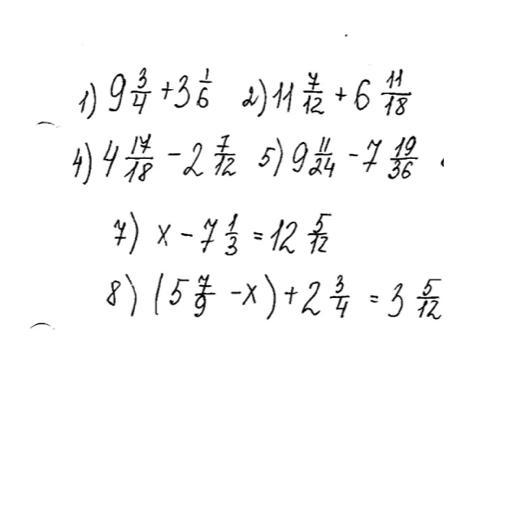 1) 9 3/4 + 3 1/6 2) 11 7/12 + 6 11/18
4) 4 17/18 - 2 7/12 5) 9 11/24 - 7 19/36
7) x - 7 1/3 = 12 5/12
8) (5 7/9 - x) + 2 3/4 = 3 5/12